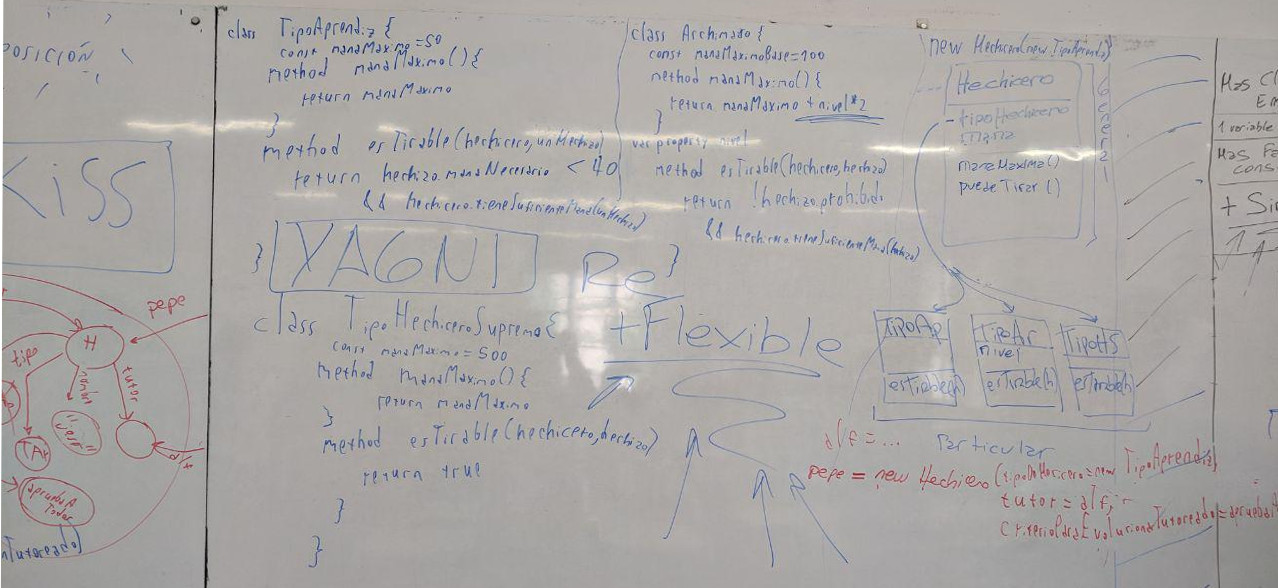 POSICIÓN
KiSS
pepe
H
tipo
tutor
TAr
aprueba A
Todos
nTutoreado)
class TipoAprendiz {
const manaMaximo = 50
method manaMaximo() {
return manaMaximo
}
method esTirable(hechicero, unHechizo)
return hechizo.manaNecesario < 40
&& hechicero.tieneSuficienteMana(unHechizo)
}
YAGNI
class TipoHechiceroSupremo {
const manaMaximo = 500
method manaMaximo() {
return manaMaximo
}
method esTirable(hechicero, hechizo)
return true
}
}
class Archimago {
const manaMaximoBase = 100
method manaMaximo() {
return manaMaximo + nivel * 2
}
var property nivel
method esTirable(hechicero, hechizo)
return !hechizo.prohibido
&& hechicero.tieneSuficienteMana(hechizo)
}
Re
+Flexible
new Hechicero(new TipoAprendiz)
Hechicero
- tipoHechicero
mana
manaMaximo()
puedeTirar()
General
TipoAp
esTirable(h)
TipoAr
nivel
esTirable(h)
TipoHS
esTirable(h)
Particular
alf = ...
pepe = new Hechicero(tipoHechicero = new TipoAprendiz,
tutor = alf,
criterioParaEvolucionarTutoreado =
Mas
1 variable
Mas
cons
+